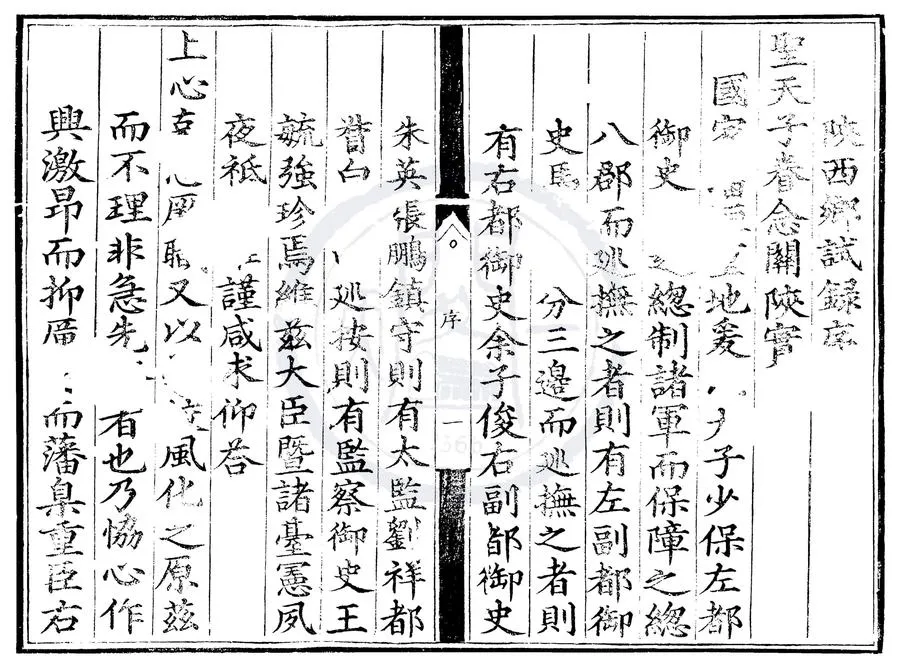 陝西鄉試録序
聖天子眷念關陝實
國 地爰 子少保左都
御史 總制諸軍而保障之總
八郡而廵撫之者則有左副都御
史 分三邉而廵撫之者則
有右都御史余子俊右副都御史
序
一
朱英張鵬鎮守則有太監劉祥都
廵按則有監察御史王
毓強珍焉維兹大臣暨諸臺憲夙
夜祗 謹咸求仰荅
上心 又以 風化之原兹
而不理非急先 有也乃恊心作
興激昂而抑 而藩臬重臣右